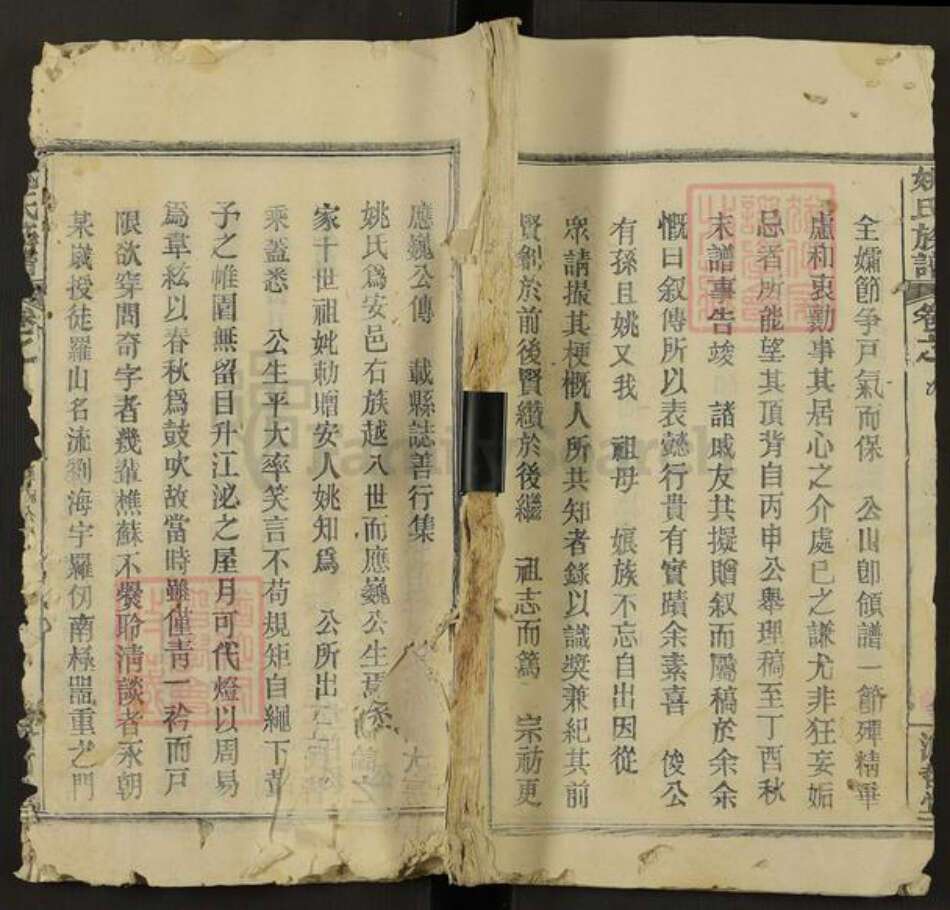 姚氏族譜 卷之
全孀節爭戸氣而保 公山卽領譜一節殫精畢
慮和衷勷事其居心之介處已之謙尤非狂妄妬
忌者所能望其頂背自丙申公舉理稿至丁酉秋
末譜事告竣 諸戚友共擬贈叙而屬稿於余余
慨曰叙傳所以表懿行貴有實蹟余素喜 俊公
有孫且姚又我 祖母 娘族不忘自出因從
眾請撮其梗慨人所共知者錄以識獎兼紀其前
賢創於前後賢纘於後繼 祖志而篤 宗祊更
應巍公傳 載縣誌善行集
姚氏爲安邑右族越八世而應巍公生焉
家十世祖妣勅贈安人姚知爲 公所出
乘蓋悉 公生平大率笑言不苟規矩自繩下董
予之帷園無留目升江泌之屋月可代燈以周易
爲韋絃以春秋爲鼓吹故當時雖僅青一衿而戸
限欲穿問奇字者幾輩樵蘇不爨聆清談者永朝
某歲授徒羅山名流劉海宇羅仞南極噐重之門